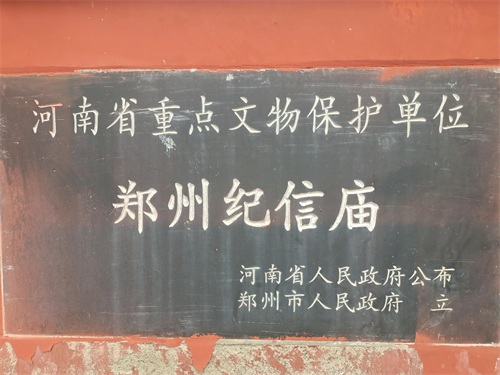 河南省重点文物保护单位
郑州纪信庙
河南省人民政府公布
郑州市人民政府 立